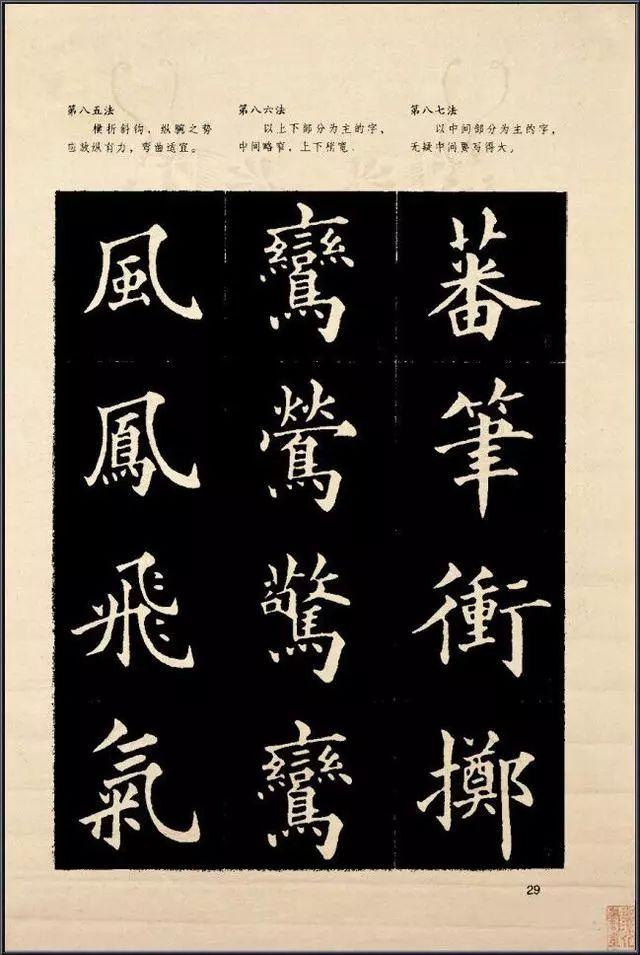 第八五法
横折斜钩，纵腕之势
应放纵有力，弯曲适宜。
第八六法
以上下部分为主的字，
中间略窄，上下稍宽.
第八七法
以中间部分为主的字，
无疑中间要写得大。
風
鳳
飛
氣
鸞
鶯
驚
鸞
蕃
筆
衝
擲
29